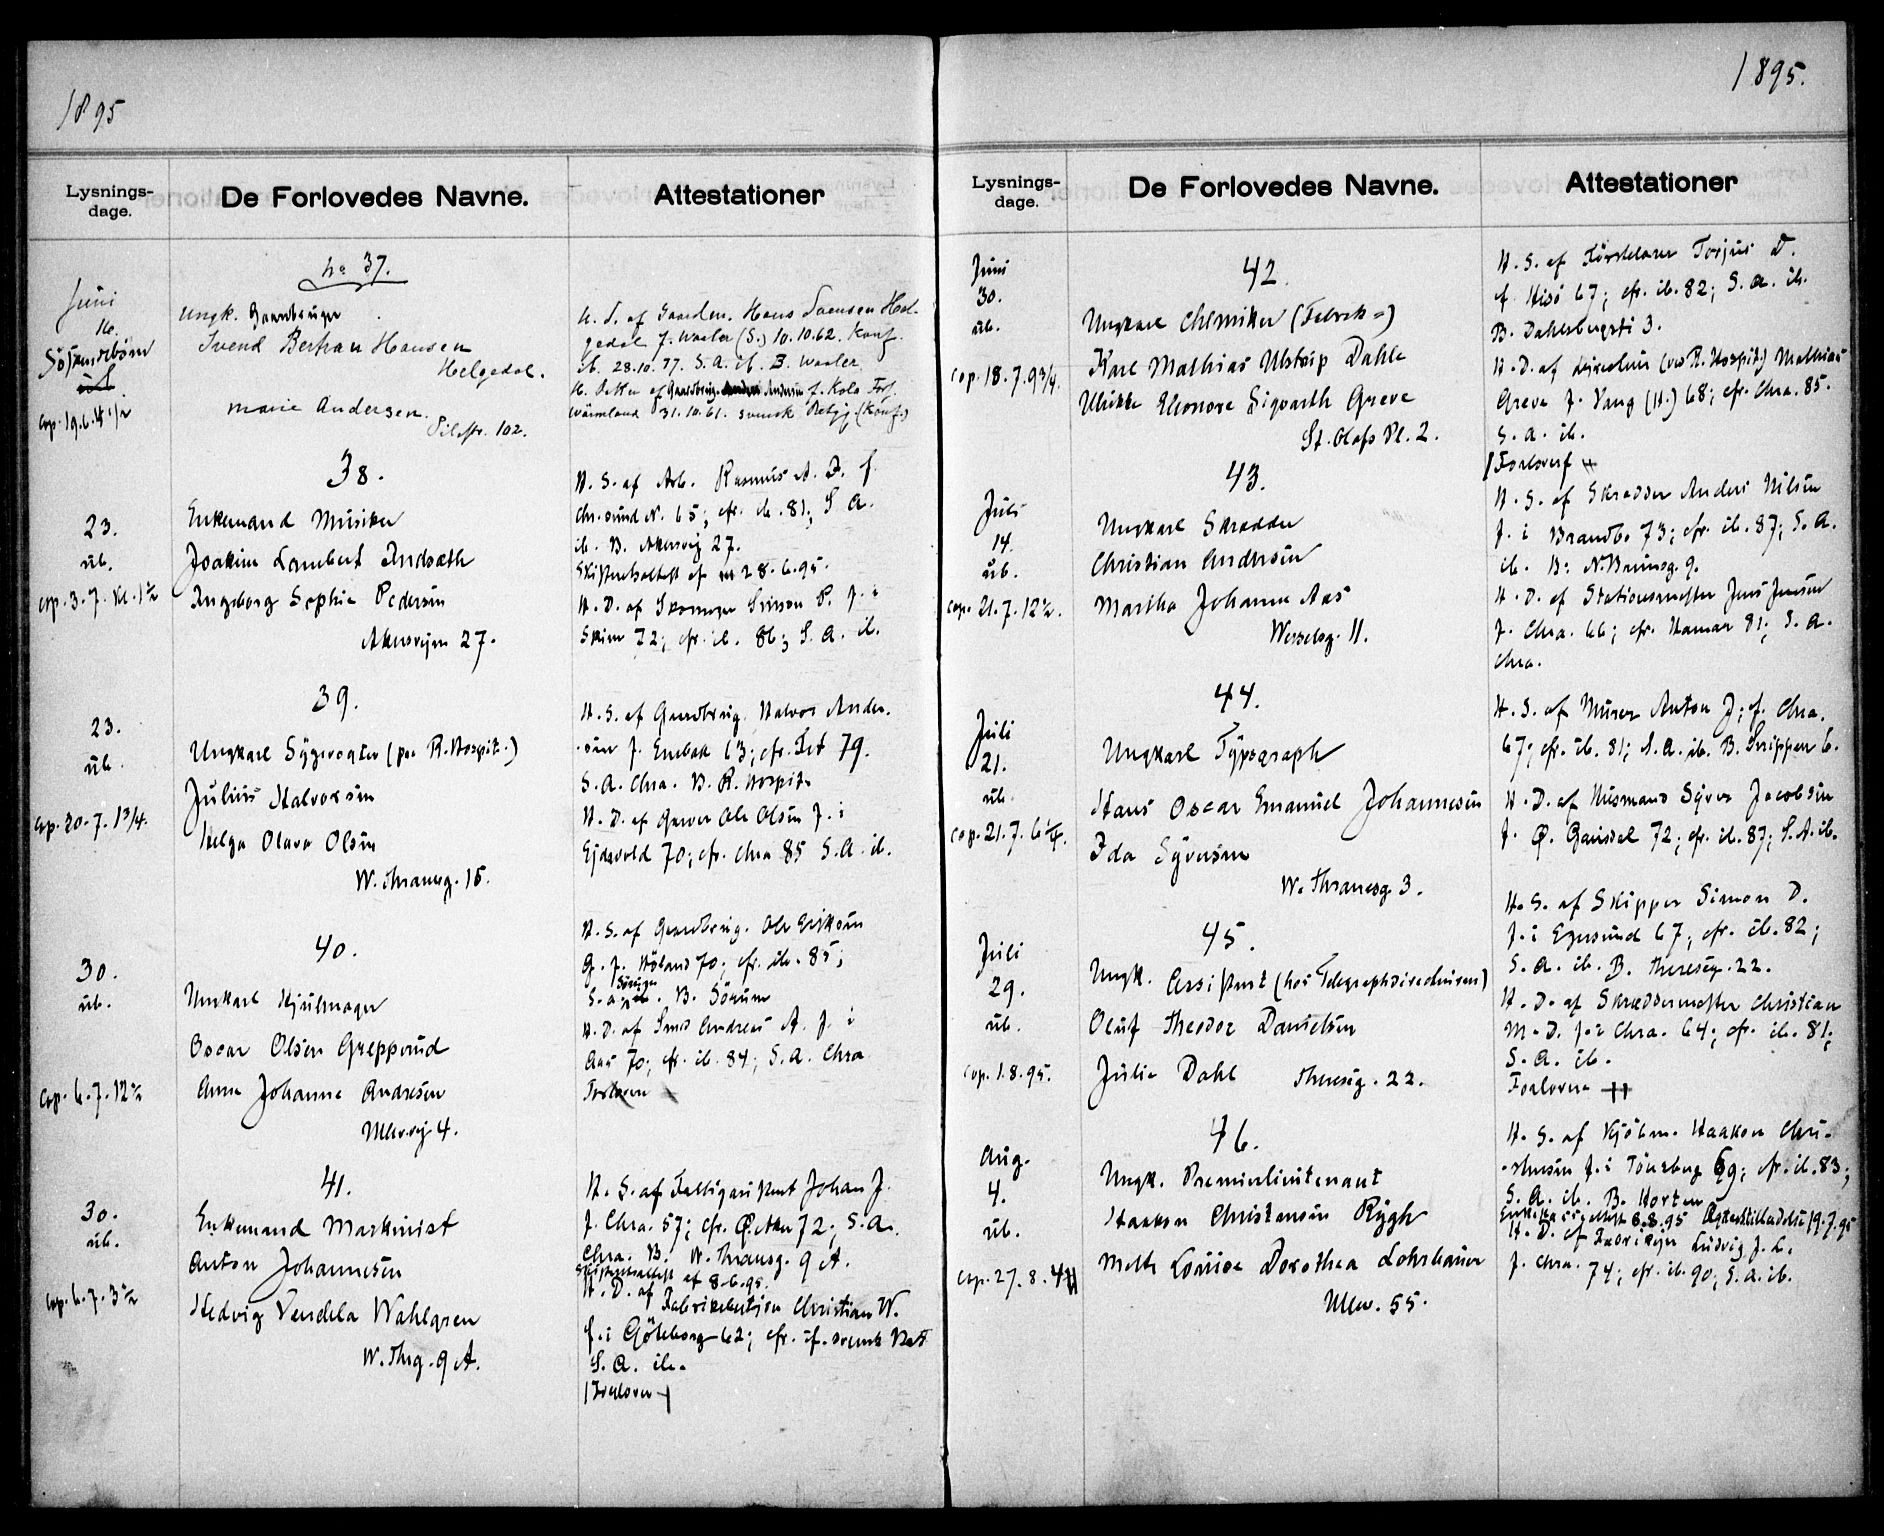 1895
Lysnings-
dage.
De Forlovedes Navne.
Attestationer
No 37.
Juni
16.
Ungk. Gaardbruger
Svend Bertran Hansen
Helgedal.
Marie Andersen.
Pilestr. 102.
cop. 19.6.
U. S. af Gaardm. Hans Svensen Hel-
gedal f. Vaaler (S.) 10.10.62. Konf.
ib. 28.10.77. S. A. ib. B. Vaaler.
Wärmland 31.10.61. svensk Betyg (Konf.)
38.
23.
üb.
cop. 3.7. Kl. 1½
Enkemand Musiker
Joakim Lambert Indsæth
Ingeborg Sophie Pedersen
Akersvejen 27.
H. S. af Arb. Rasmus A. I. f.
Chr.sund N. 65; cfr. ib. 81; S. A.
ib. B. Akersvej 27.
Skifteattest af 28.6.95.
H. D. af Skomager Simon P. f. i
Skien 72; cfr. ib. 86; S. A. ib.
39.
23.
üb.
cop. 20.7. 1¾.
Ungkarl Sygevogter (paa R. Hospit.)
Julius Halvorsen
Helga Olava Olsen
W. Thranesg. 15.
H. S. af Gaardbrug. Halvor Ander-
sen f. Enebak 63; cfr. Fet 79.
S. A. Chra. B. R. Hospit.
H. D. af Garver Ole Olsen f. i
Ejdsvold 70; cfr. Chra 85 S. A. ib.
40.
30.
üb.
cop. 6.7. 12½
Ungkarl Hjulmager
Oscar Olsen Greppsrud
Anna Johanne Andresen
Ullev.vej 4.
H. S. af Gaardbrug. Ole Eriksen
G. f. Høland 70; cfr. ib. 85;
S. A. Sørum. B. Sørum
H. D. af Smed Andreas A. f. i
Aas 70; cfr. ib. 84; S. A. Chra
Forlovere
41.
30.
üb.
cop. 6.7. 3½
Enkemand Maskinist
Anton Johannesen
Hedvig Vendela Wahlgren
W. Thrg. 9 A.
H. S. af Fattiglem Johan J.
f. Chra. 57; cfr. Ø. Aker 72; S. A.
Chra. B. W. Thranesg. 9 A.
Skifteattest af 8.6.95.
H. D. af Fabrikbetjen Christian W.
f. i Göteborg 62; cfr. svensk Bet
S. A. ib.
Forlovere
1895.
Lysnings-
dage.
De Forlovedes Navne.
Attestationer
42.
Juni
30.
üb.
cop. 18.7.
Ungkarl Chemiker (Fabrik-)
Karl Mathias Ulstrup Dahle
Ulrikke Eleonore Sigvarth Greve
St. Olafs Pl. 2.
H. S. af Torjus D.
f. Hisø 67; cfr. ib. 82; S. A. ib.
B. Dahlsbergsti 3.
H. D. af Direktør (ved R. Hospit.) Mathias
Greve f. Vang (H.) 68; cfr. Chra. 85.
S. A. ib.
43.
Juli
14.
üb.
cop. 21.7. 12½.
Ungkarl Skrædder
Christian Andersen
Martha Johanne Aas
Wesselsg. 11.
H. S. af Skrædder Anders Nilsen
f. i Brandbo 73; cfr. ib. 87; S. A.
ib. B. N. Brunsg. 9.
H. D. af Stationsmester Jens Jensen
f. Chra. 66; cfr. Hamar 81; S. A.
Chra.
44.
Juli
21.
üb.
cop. 21.7. 6¼.
Ungkarl Typograph
Hans Oscar Emanuel Johannesen
Ida Syversen
W. Thranesg 3.
H. S. af Murer Anton J; f. Chra.
67; cfr. ib. 81; S. A. ib. B. Snippen 6.
H. D. af Husmand Syver Jacobsen
f. Ø. Gausdal 72; cfr. ib. 87; S. A. ib.
45.
Juli
29.
üb.
cop. 1.8.95.
Ungk. Assistent (hos Telegraphdirecteuren)
Oluf Theodor Danielsen
Julie Dahl Theresesg. 22.
H. S. af Skipper Simon D.
f. i Egersund 67; cfr. ib. 82;
S. A. ib. B. Theresesg. 22.
H. D. af Skræddermester Christian
M. D. f. i Chra. 64; cfr. ib. 81;
S. A. ib.
Forlovere
46.
Aug.
4.
üb.
cop. 27.8.
Ungk. Premierlieutenant
Haakon Christensen Rygh
Mette Louise Dorothea Lohrbauer
Ullev. 55.
H. S. af Kjøbm. Haakon Chri-
stensen f. i Tönsberg 69; cfr. ib. 83;
S. A. ib. B. Horten
Ægteskabstilladelse 19.7.95
H. D. af Ludvig J. L.
f. Chra. 74; cfr. ib. 90; S. A. ib.